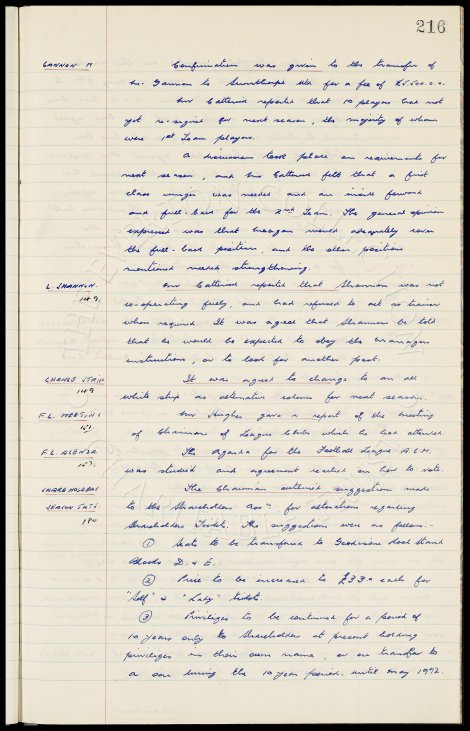 216
GANNON M Confirmation was given to the transfer of
Mr. Gannon to Scunthorpe Utd for a fee of
Mr Catterick reported that 10 players had not
yet re-signed for next season, the majority of whom
were 1st Team players.
A discussion took place on requirements for
next season, and Mr Catterick felt that a first
class winger was needed and an inside forward
and full-back for the 2nd Team. The general opinion
expressed was that Meagan would adequately cover
the full-back position, and the other positions
mentioned needed strengthening.
L. SHANNON. Mr Catterick reported that Shannon was not
149. co-operating fully, and had refused to act as trainer
when required. It was agreed that Shannon be told
that he would be expected to obey the Managers
instructions, or to look for another post.
CHANGE STRIP It was agreed to change to an all
149 white strip as alternative colours for next season.
F.L. MEETING Mr Hughes gave a report of the meeting
151. of Chairmen of League Clubs which he had attended
F.L. AGENDA The Agenda for the Football League A.G.M.
157. was studied and agreement reached on how to vote.
SHAREHOLDERS The Chairman outlined suggestions made
SEASON TKTS. to the Shareholders Assn. for alterations regarding
180 Shareholders Tickets. The suggestions were as follows:-
① Seats to be transferred to Goodison Road Stand
Blocks D. & E.
② Price to be increased to each for
"Self" & "Lady" tickets.
③ Privileges to be continued for a period of
10 years only to Shareholders at present holding
privileges in their own name, or on transfer to
a son during the 10 year period, until May 1972.